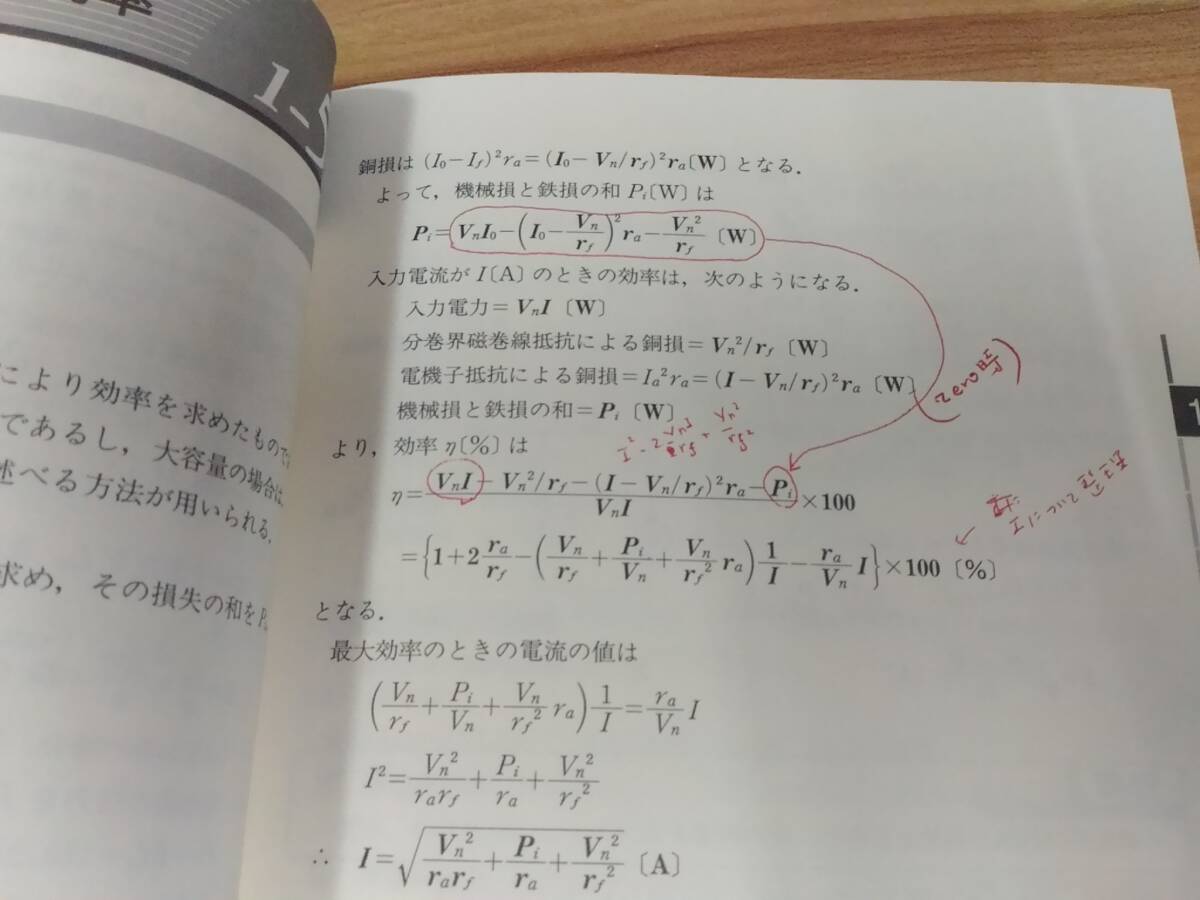 率
1-5
により効率を求めたもので
であるし，大容量の場合は
述べる方法が用いられる．
求め，その損失の和をP
銅損は (I₀−I_f)²r_a=(I₀−V_n/r_f)²r_a〔W〕となる．
よって，機械損と鉄損の和 P_i〔W〕は
P_i=V_nI₀−(I₀−V_n/r_f)²r_a−V_n²/r_f〔W〕
入力電流が I〔A〕のときの効率は，次のようになる．
入力電力=V_nI〔W〕
分巻界磁巻線抵抗による銅損=V_n²/r_f〔W〕
電機子抵抗による銅損=I_a²r_a=(I−V_n/r_f)²r_a〔W〕
(zero時)
機械損と鉄損の和=P_i〔W〕
より，効率 η〔%〕は
η=(V_nI−V_n²/r_f−(I−V_n/r_f)²r_a−P_i)/(V_nI)×100
Iについて
={1+2 r_a/r_f−(V_n/r_f+P_i/V_n+V_n/r_f² r_a)1/I−r_a/V_n I}×100〔%〕
となる．
最大効率のときの電流の値は
(V_n/r_f+P_i/V_n+V_n/r_f² r_a)1/I=r_a/V_n I
I²=V_n²/(r_ar_f)+P_i/r_a+V_n²/r_f²
∴ I=√(V_n²/(r_ar_f)+P_i/r_a+V_n²/r_f²)〔A〕
1